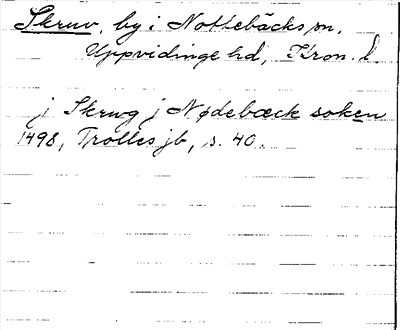 Skruv, by i Nottebäcks sn.
Uppvidinge hd, Kron. l
j Skrug j Nødebæck soken
1498, Trolles jb, s. 40.